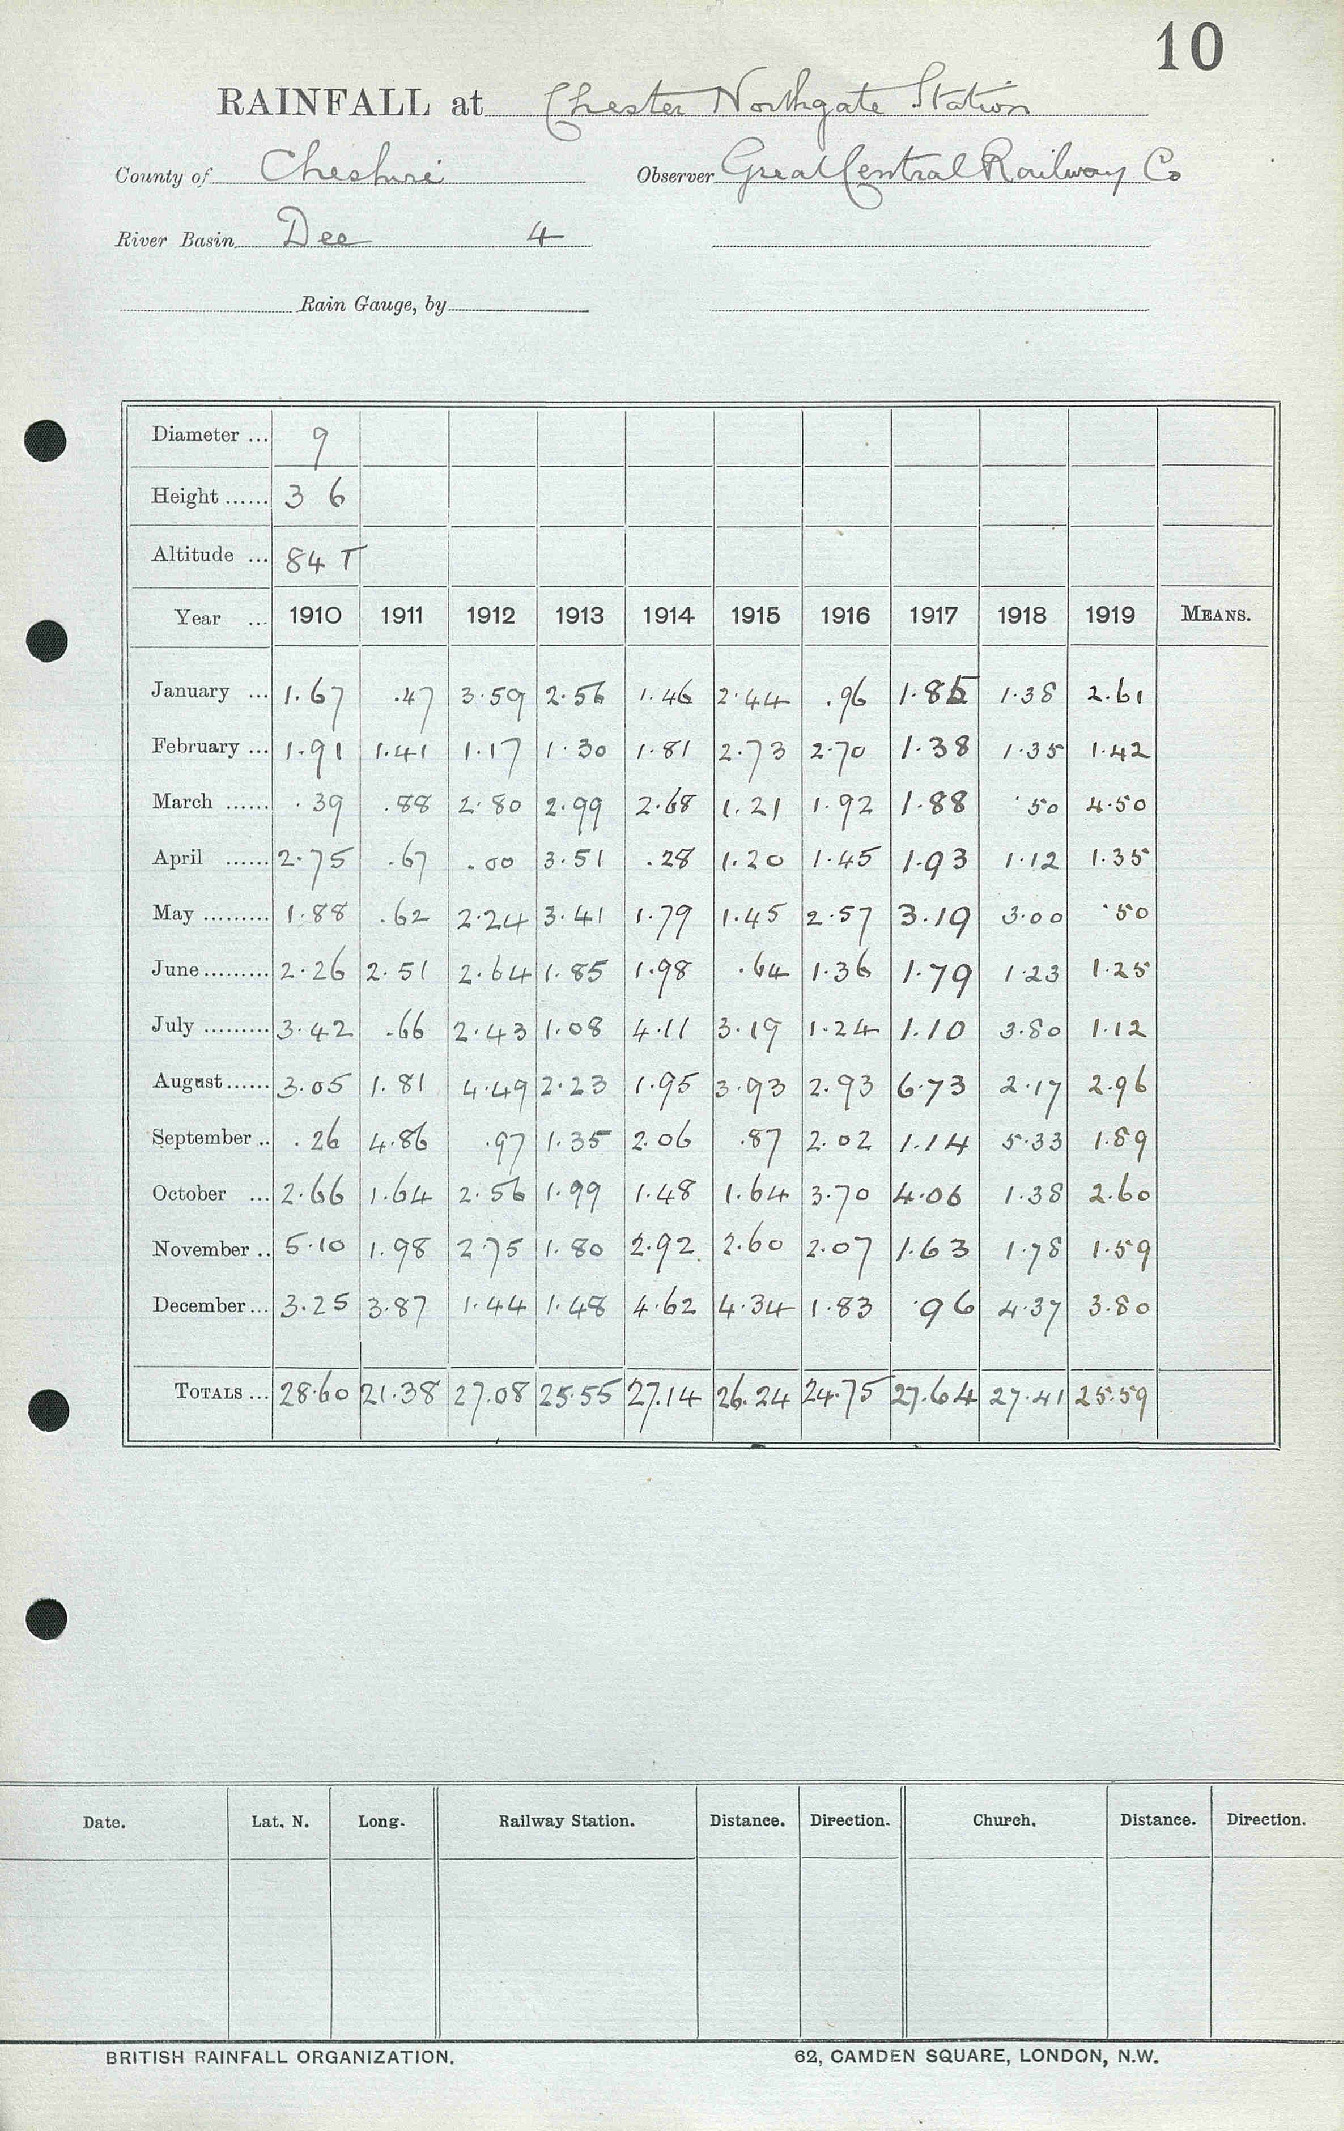 10
RAINFALL at Chester Northgate Station
County of Cheshire Observer Great Central Railway Co
River Basin Dee 4
Rain Gauge, by
Diameter ... 9
Height ...... 3 6
Altitude ... 84 T
Year ... 1910 1911 1912 1913 1914 1915 1916 1917 1918 1919 MEANS.
January ... 1.67 .47 3.59 2.56 1.46 2.44 .96 1.85 1.38 2.61
February ... 1.91 1.41 1.17 1.30 1.81 2.73 2.70 1.38 1.35 1.42
March ...... .39 .88 2.80 2.99 2.68 1.21 1.92 1.88 .50 4.50
April ...... 2.75 .67 .00 3.51 .28 1.20 1.45 1.93 1.12 1.35
May ......... 1.88 .62 2.24 3.41 1.79 1.45 2.57 3.19 3.00 .50
June ......... 2.26 2.51 2.64 1.85 1.98 .64 1.36 1.79 1.23 1.25
July ......... 3.42 .66 2.43 1.08 4.11 3.19 1.24 1.10 3.80 1.12
August ...... 3.05 1.81 4.49 2.23 1.95 3.93 2.93 6.73 2.17 2.96
September .. .26 4.86 .97 1.35 2.06 .87 2.02 1.14 5.33 1.89
October ... 2.66 1.64 2.56 1.99 1.48 1.64 3.70 4.06 1.38 2.60
November .. 5.10 1.98 2.75 1.80 2.92 2.60 2.07 1.63 1.78 1.59
December ... 3.25 3.87 1.44 1.48 4.62 4.34 1.83 .96 4.37 3.80
TOTALS ... 28.60 21.38 27.08 25.55 27.14 26.24 24.75 27.64 27.41 25.59
Date. Lat. N. Long. Railway Station. Distance. Direction. Church. Distance. Direction.
BRITISH RAINFALL ORGANIZATION. 62, CAMDEN SQUARE, LONDON, N.W.